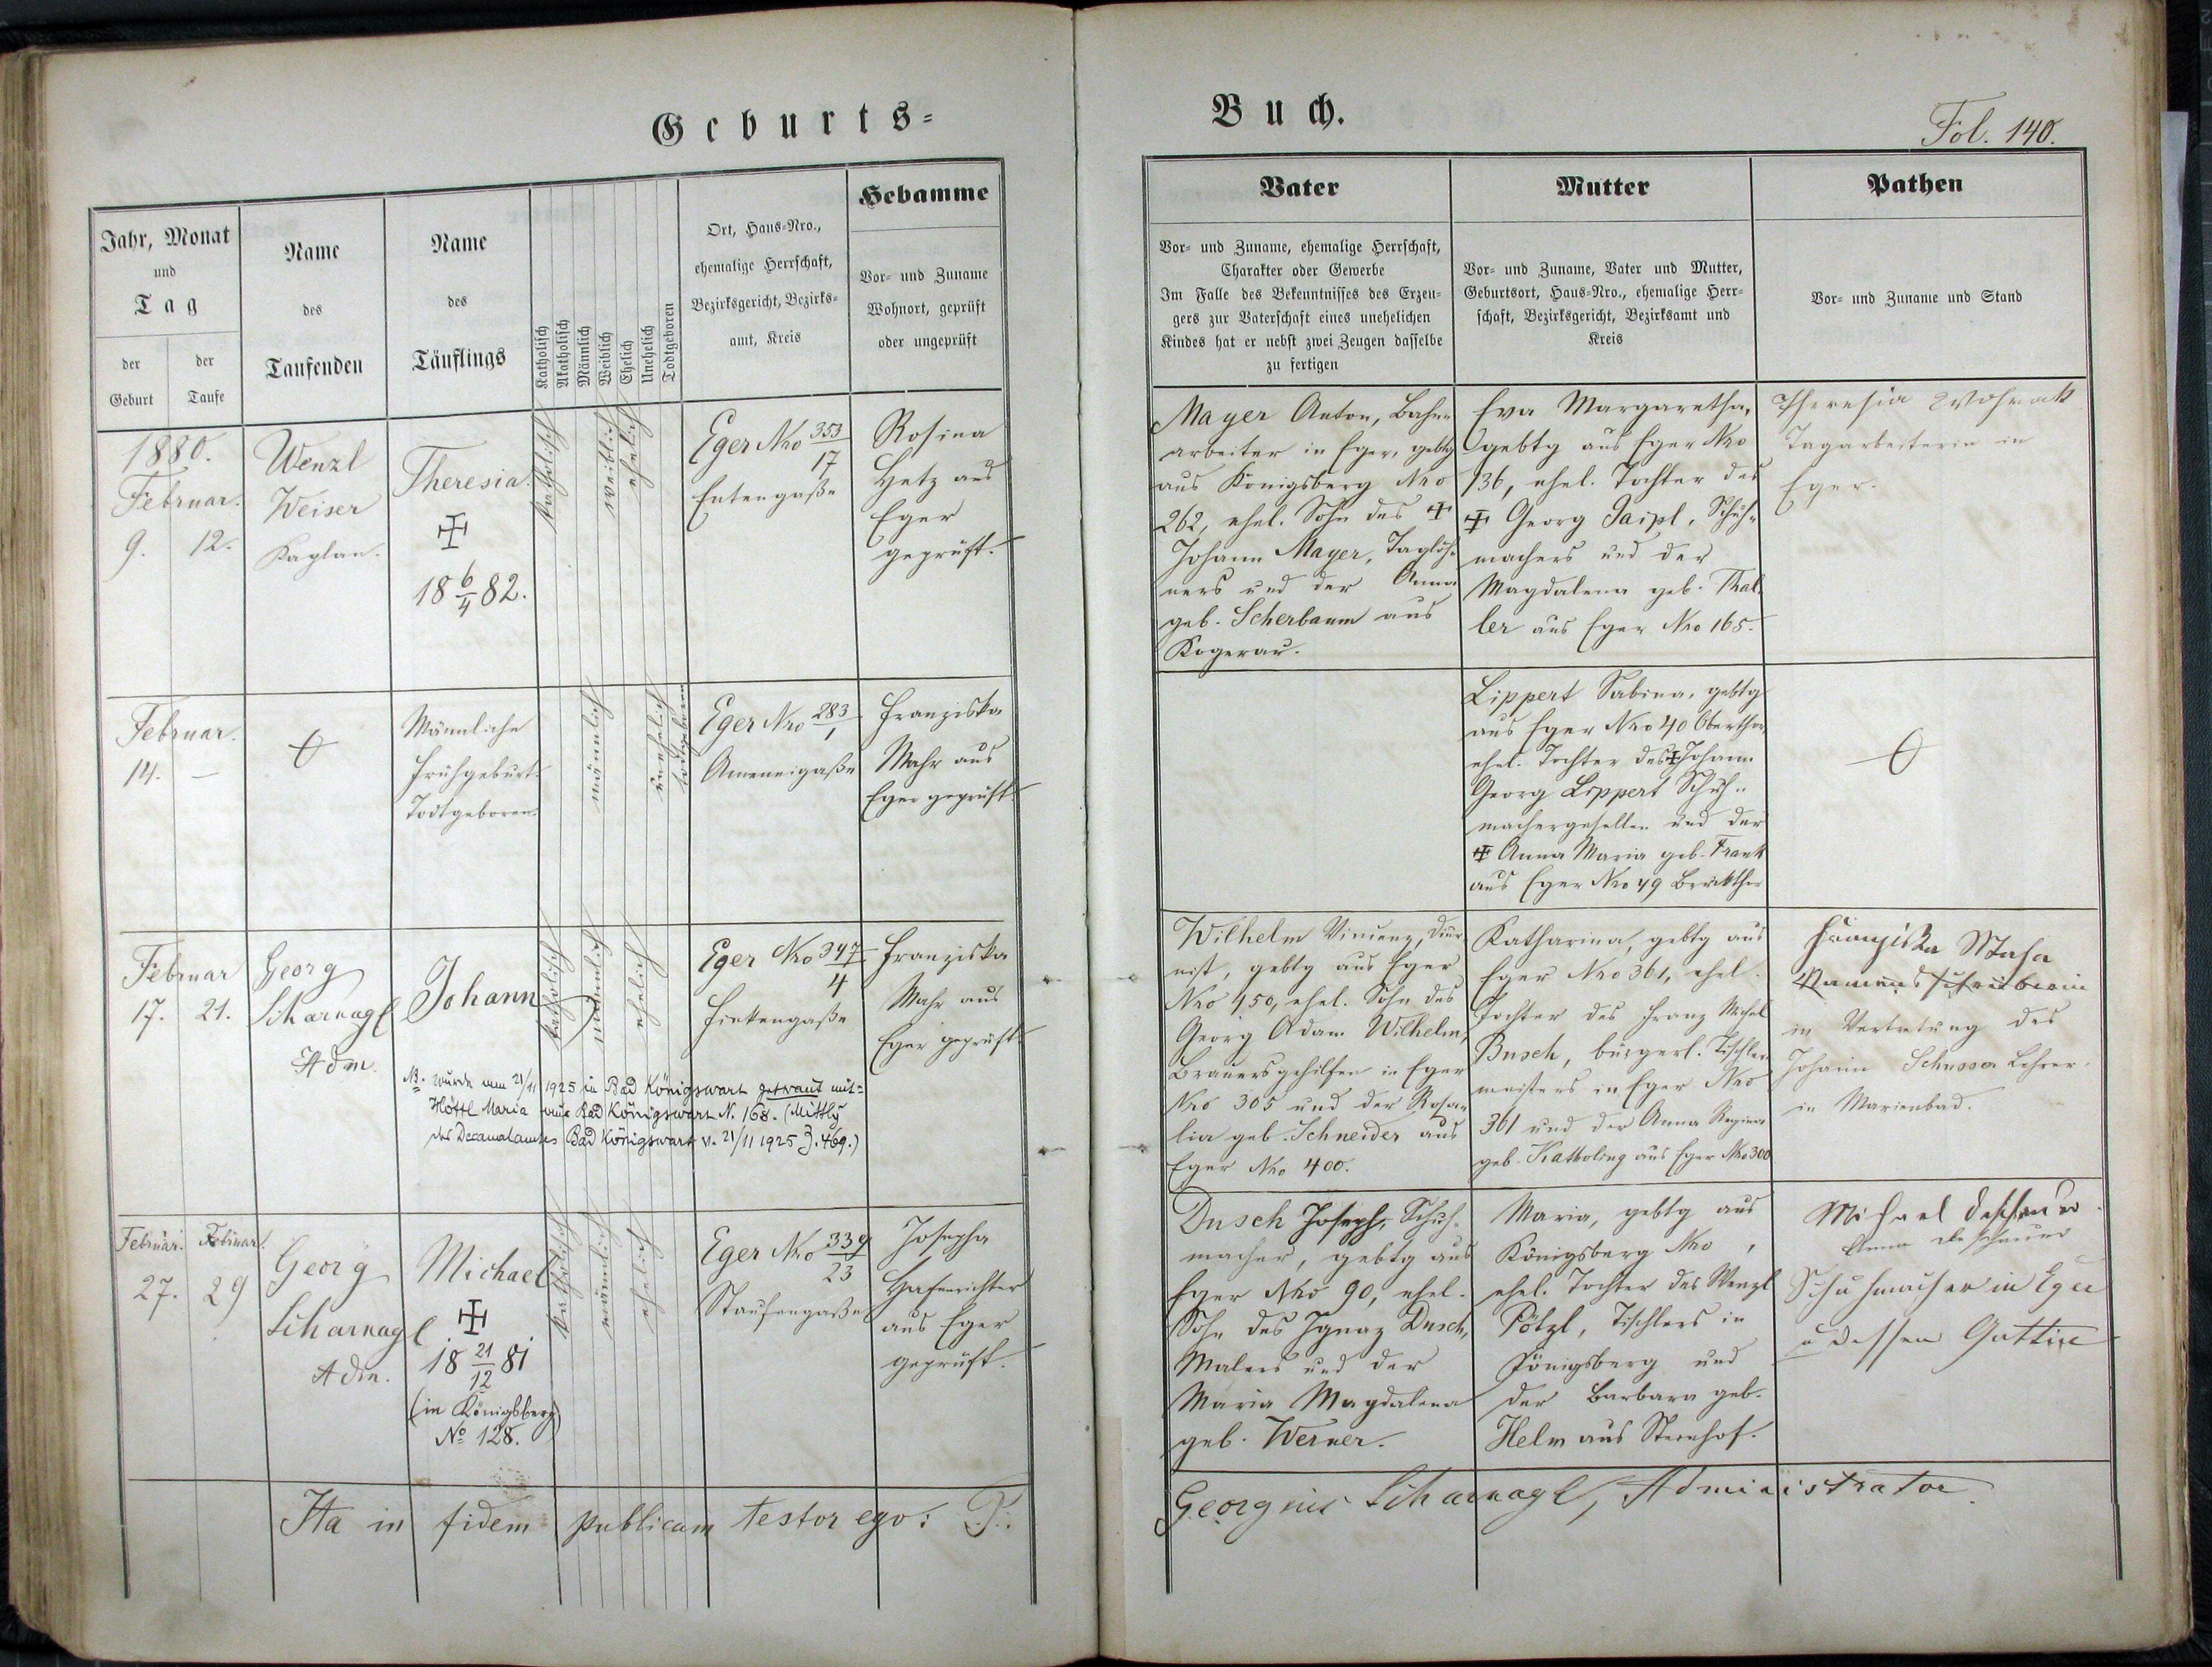 Geburts-
Buch.
Fol. 140.
Jahr, Monat
und
Tag
der
Geburt
der
Taufe
Name
des
Taufenden
Name
des
Täuflings
Katholisch
Akatholisch
Männlich
Weiblich
Ehelich
Unehelich
Todtgeboren
Ort, Haus-Nro.,
ehemalige Herrschaft,
Bezirksgericht, Bezirks-
amt, Kreis
Hebamme
Vor- und Zuname
Wohnort, geprüft
oder ungeprüft
Vater
Vor- und Zuname, ehemalige Herrschaft,
Charakter oder Gewerbe
Im Falle des Bekenntnisses des Erzeu-
gers zur Vaterschaft eines unehelichen
Kindes hat er nebst zwei Zeugen dasselbe
zu fertigen
Mutter
Vor- und Zuname, Vater und Mutter,
Geburtsort, Haus-Nro., ehemalige Herr-
schaft, Bezirksgericht, Bezirksamt und
Kreis
Pathen
Vor- und Zuname und Stand
1880.
Februar.
9. 12.
Wenzl
Weiser
Kaplan.
Theresia.
18 6/4 82.
katholisch
weiblich
ehelich
Eger Nro 353/17
Entengaße
Rosina
Hetz aus
Eger
geprüft.
Mayer Anton, Bahn-
arbeiter in Eger, gebtg
aus Königsberg Nro
262, ehel. Sohn des ✠
Johann Mayer, Taglöh-
ners und der Anna
geb. Scherbaum aus
Kogerau.
Eva Margaretha,
gebtg aus Eger Nro
136, ehel. Tochter des
✠ Georg Paipl, Schuh-
machers und der
Magdalena geb. Thal-
ler aus Eger Nro 165.
Theresia
Tagarbeiterin in
Eger.
Februar.
14. —
Männliche
Frühgeburt.
Todtgeboren.
männlich
unehelich
todtgeboren
Eger Nro 283/1
Ameneigaße
Franziska
Mahr aus
Eger geprüft.
Lippert Sabina, gebtg
aus Eger Nro 40 Oberthor
ehel. Tochter des ✠ Johann
Georg Lippert Schuh-
machergesellen und der
✠ Anna Maria geb. Frank
aus Eger Nro 49
Februar
17. 21.
Georg
Scharnagl
Adm.
Johann
katholisch
männlich
ehelich
Eger Nro 347/4
Franziska
Mahr aus
Eger geprüft.
NB. wurde am 21/11 1925 in Bad Königswart getraut mit
Höttl Maria aus Bad Königswart N. 168. (Mittlg
des Decanalamtes Bad Königswart v. 21/11 1925 Z. 469.)
Wilhelm Vincenz, Diur-
nist, gebtg aus Eger
Nro 450, ehel. Sohn des
Georg Adam Wilhelm,
Brauersgehilfen in Eger
Nro 305 und der Rosa-
lia geb. Schneider aus
Eger Nro 400.
Katharina, gebtg aus
Eger Nro 361, ehel.
Tochter des Franz Michel
Busch, bürgerl. Tischler-
meisters in Eger Nro
361 und der Anna Regina
geb. Kattoling aus Eger Nro 300
Franziska
Namensschreiberin
in Vertretung des
Johann Lehrer
in Marienbad.
Februar. Februar.
27. 29
Georg
Scharnagl
Adm.
Michael
18 21/12 81
(in Königsberg)
No 128.
katholisch
männlich
ehelich
Eger Nro 339/23
Staufengaße
Josepha
Hafenrichter
aus Eger
geprüft.
Dusch Joseph, Schuh-
macher, gebtg aus
Eger Nro 90, ehel.
Sohn des Ignaz Dusch,
Malers und der
Maria Magdalena
geb. Werner.
Maria, gebtg aus
Königsberg Nro ,
ehel. Tochter des Wenzl
Pötzl, Tischlers in
Königsberg und
der Barbara geb.
Helm aus
Michael
Anna
Schuhmacher in Eger
u dessen Gattin
Ita in fidem publicam testor ego: P.
Georgius Scharnagl, Administrator.